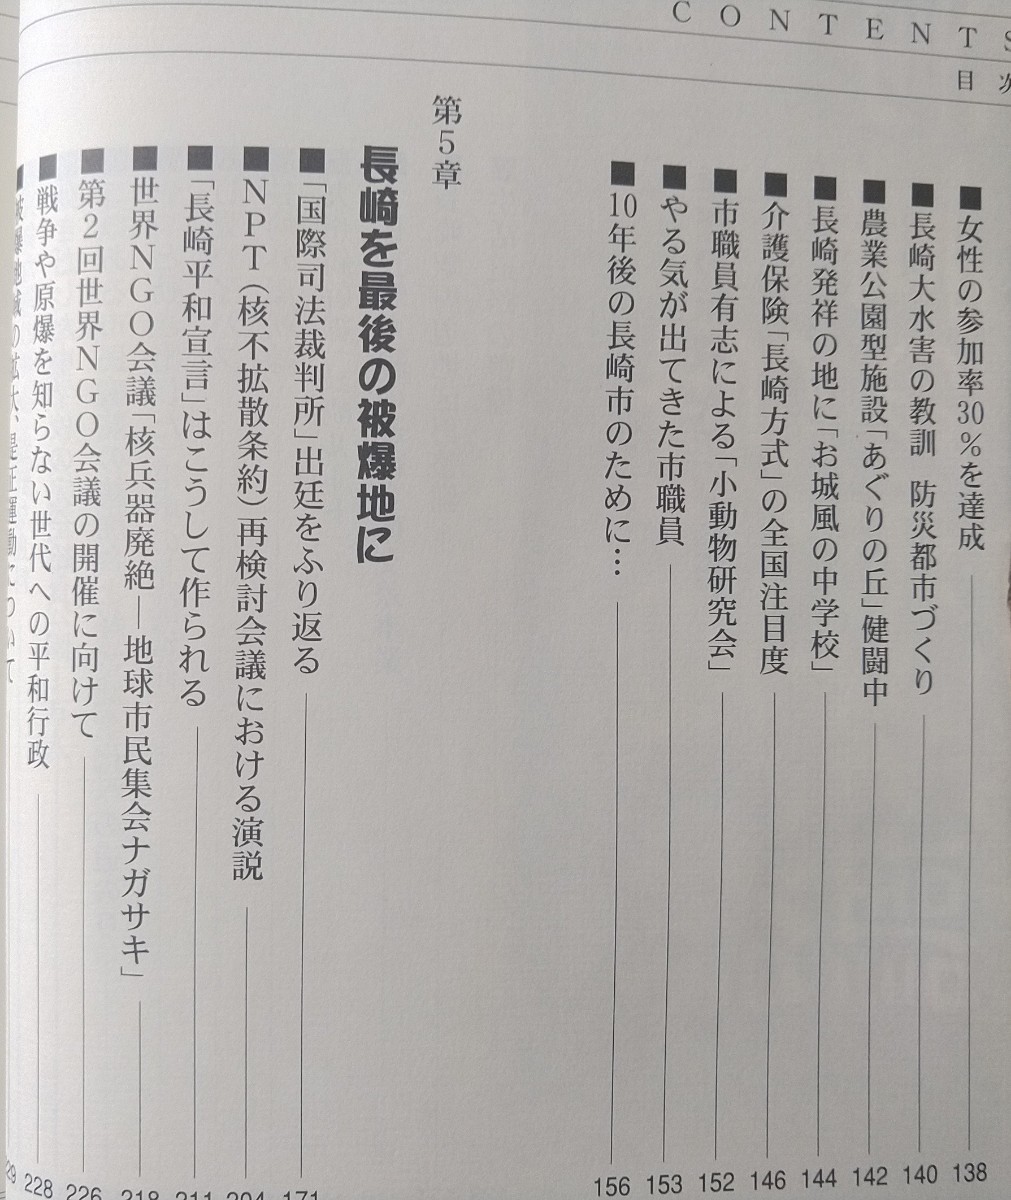 CONTENTS
目次
■女性の参加率30%を達成 138
■長崎大水害の教訓 防災都市づくり 140
■農業公園型施設「あぐりの丘」健闘中 142
■長崎発祥の地に「お城風の中学校」 144
■介護保険「長崎方式」の全国注目度 146
■市職員有志による「小動物研究会」 152
■やる気が出てきた市職員 153
■10年後の長崎市のために… 156
第5章
長崎を最後の被爆地に
■「国際司法裁判所」出廷をふり返る 171
■NPT(核不拡散条約)再検討会議における演説 204
■「長崎平和宣言」はこうして作られる 211
■世界NGO会議「核兵器廃絶―地球市民集会ナガサキ」 218
■第2回世界NGO会議の開催に向けて 226
■戦争や原爆を知らない世代への平和行政 228
■被爆地域の拡大、是正運動について